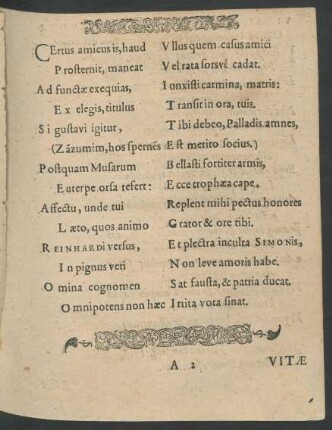 CErtus amicus is, haud Vllus quem casus amici
Prosternit, maneat Vel rata sorsvè cadat.
Ad functæ exequias, Iunxisti carmina, matris:
Ex elegis, titulus Transit in ora, tuis.
Si gustavi igitur, Tibi debeo, Palladis amnes,
(Zãzumim, hos spernés Est metito socius.)
Postquam Musarum Bellasti fortiter armis,
Euterpe orsa refert: Ecce trophæa cape,
Affectu, unde tui Replent mihi pectus honores
Læto, quos animo Grator & ore tibi.
REINHARDI versus, Et plectra inculta SIMONIS,
In pignus veri Non leve amoris habe.
Omina cognomen Sat fausta, & patria ducat.
Omnipotens non hæc Irrita vota sinat.
A 2 VITÆ